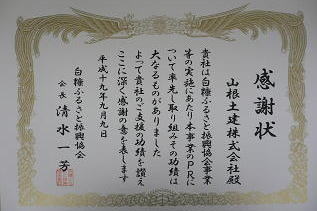 感謝状
山根土建株式会社殿
貴社は白糠ふるさと振興協会事業
等の実施にあたり本事業のPRに
ついて率先し取り組みその功績は
大なるものがありました
よって貴社のご支援の功績を讃え
ここに深く感謝の意を表します
平成十九年九月九日
白糠ふるさと振興協会
会長 清水一芳